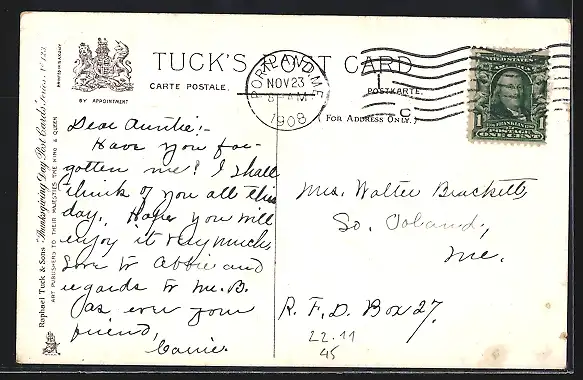 TUCK'S POST CARD
CARTE POSTALE.
POSTKARTE.
BY APPOINTMENT
(FOR ADDRESS ONLY.)
PORTLAND, ME.
NOV 23
1908
C
UNITED STATES
1 FRANKLIN 1
POSTAGE
ONE CENT
Raphael Tuck & Sons' "Thanksgiving Day Post Cards" Series No. 123
ART PUBLISHERS TO THEIR MAJESTIES THE KING & QUEEN
Dear Auntie:-
Have you for-
gotten me? I shall
think of you all this
day. Hope you will
enjoy it very much.
Love to Abbie and
regards to Mr. B.
As ever your
friend,
Carrie.
Mrs. Walter Brackett,
So. Poland,
Me.
R. F. D. Box 27.
22.11
45